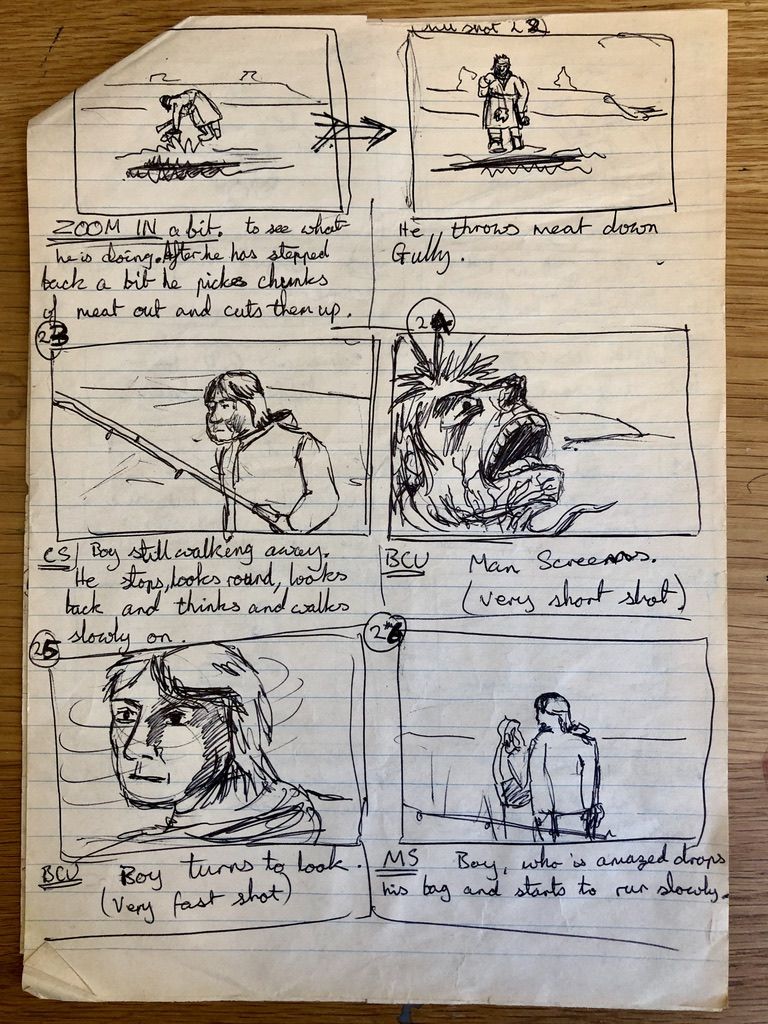 ZOOM IN a bit. to see what
he is doing. After he has stepped
back a bit he picks chunks
of meat out and cuts them up.
shot 22
He throws meat down
Gully.
23
CS Boy still walking away.
He stops, looks round, looks
back and thinks and walks
slowly on.
24
BCU Man Screams.
(very short shot)
25
BCU Boy turns to look.
(Very fast shot)
26
MS Boy, who is amazed drops
his bag and starts to run slowly.